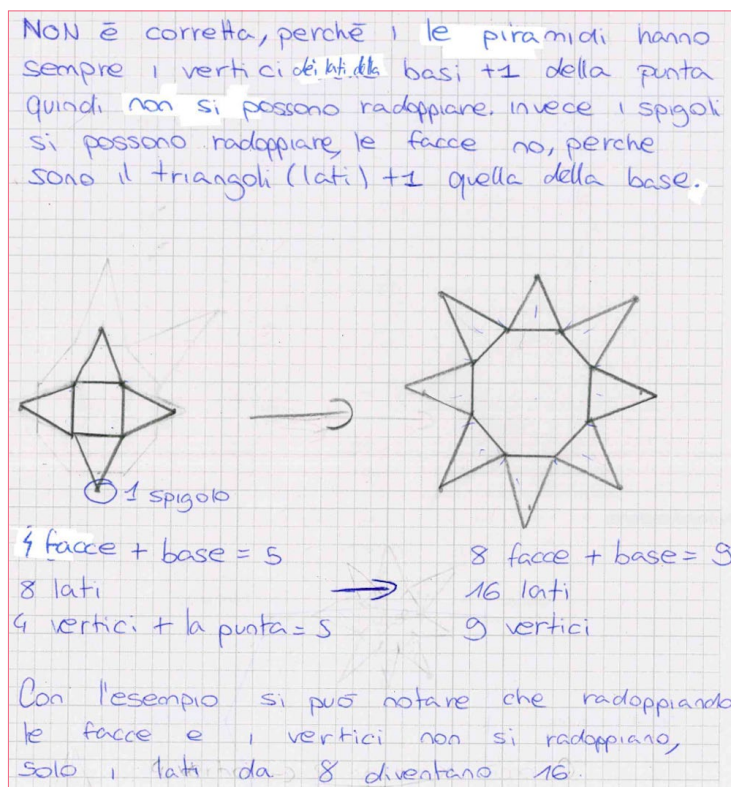 NON è corretta, perchè i le piramidi hanno
sempre i vertici dei lati della basi +1 della punta
quindi non si possono radoppiare. invece i spigoli
si possono radoppiare, le facce no, perche
sono il triangoli (lati) +1 quella della base.
1 spigolo
4 facce + base = 5
8 lati
4 vertici + la punta = 5
8 facce + base = 9
16 lati
9 vertici
Con l'esempio si può notare che radoppiando
le facce e i vertici non si radoppiano,
solo i lati da 8 diventano 16.